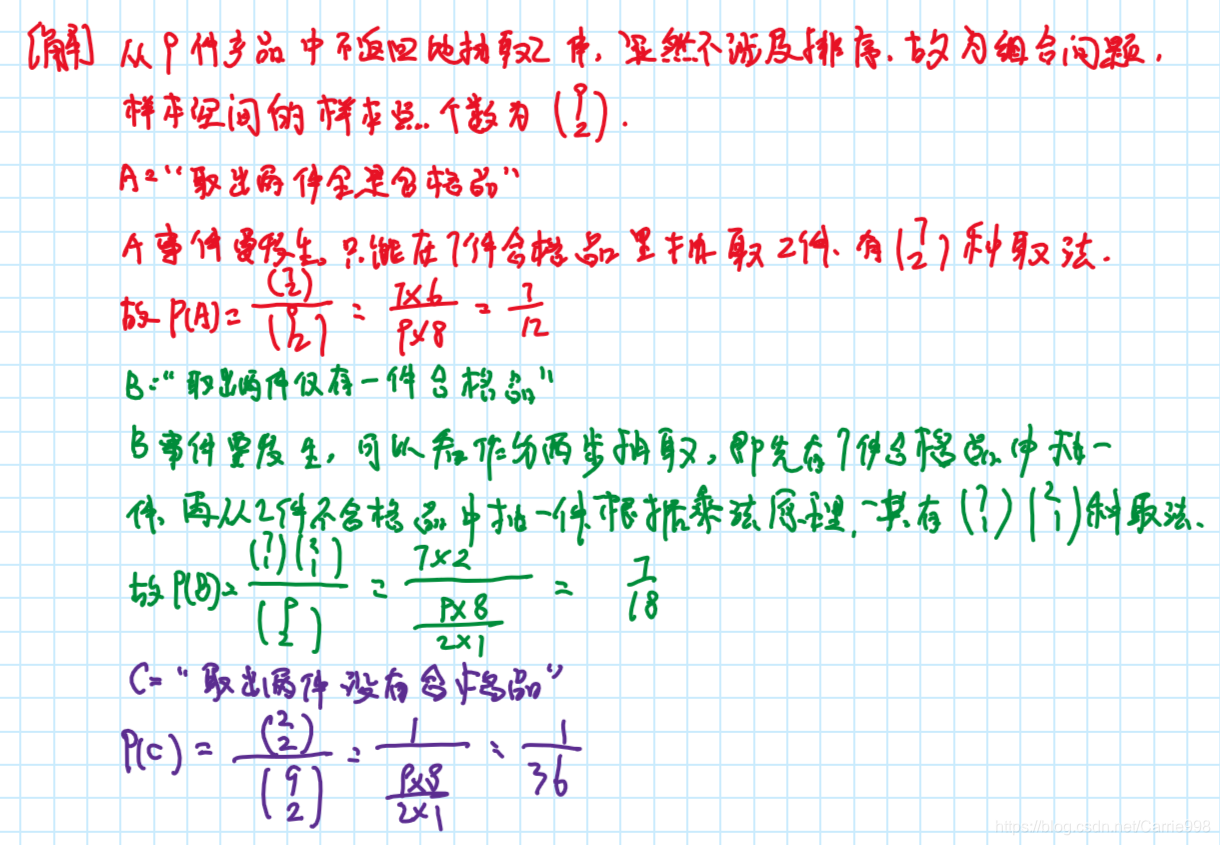 [解] 从9件产品中不返回地抽取2件,显然不涉及排序,故为组合问题,
样本空间的样本点个数为 (9 2).
A="取出两件全是合格品"
A事件要发生,只能在7件合格品里抽取2件,有(7 2)种取法.
故P(A)= (7 2)/(9 2) = 7×6/9×8 = 7/12
B="取出两件仅有一件合格品"
B事件要发生,可以看作分两步抽取,即先在7件合格品中抽一
件,再从2件不合格品中抽一件,根据乘法原理,一共有(7 1)(2 1)种取法、
故P(B)= (7 1)(2 1)/(9 2) = 7×2/(9×8/2×1) = 7/18
C="取出两件没有合格品"
P(C) = (2 2)/(9 2) = 1/(9×8/2×1) = 1/36
https://blog.csdn.net/Carrie998